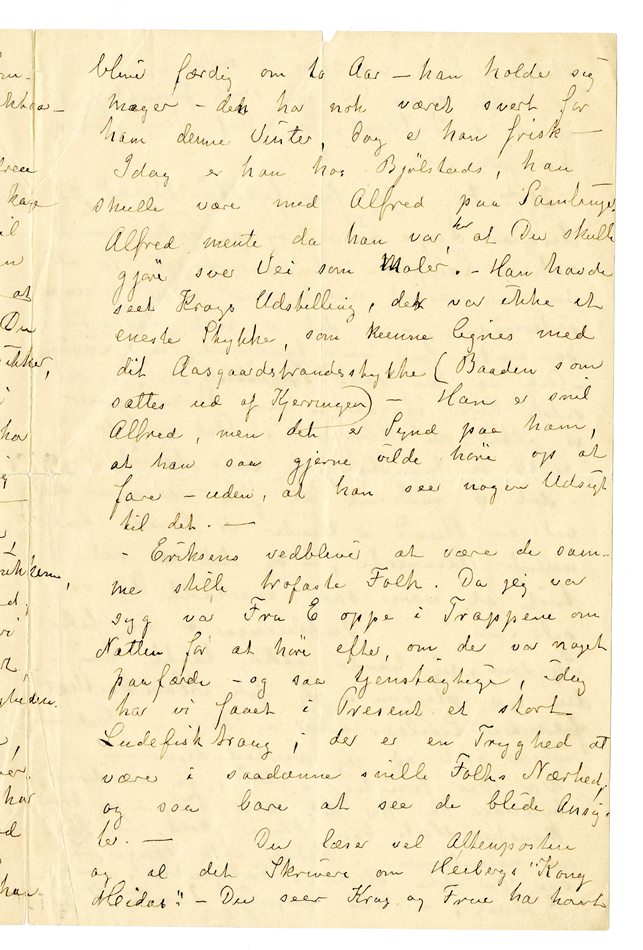 blive færdig om to Aar – han holde sig
mager – det har nok været svært for
ham denne Vinter, dog er han frisk –
Idag er han hos Bjölstads, han
skulle være med Alfred paa Samlinge
Alfred mente, da han var her, at Du skulle
gjöre svær Vei som Maler. – Han havde
seet Krogs Udstilling, det var ikke et
eneste Stykke, som kunne lignes med
dit Aasgaardstrandsstykke (Baaden som
sættes ud af Kjerringen) – Han er snil
Alfred, men det er Synd paa ham,
at han saa gjerne vilde höre op at
fare – uden, at han seer nogen Udsigt
til det. –
– Eriksens vedbliver at være de sam-
me stille trofaste Folk. Da jeg var
syg var Fru E oppe i Trappene om
Natten for at höre efter, om der var noget
paafærde – og saa tjenstagtige, idag
har vi faaet i Present et stort
Ludefisk trang, der er en Tryghed at
være i saadanne snille Folks Nærhed,
og saa bare at see de blide Ansig-
ter. – Du læser vel Aftenposten
og al det Skriveri om Heibergs "Kong
Midas". – Du seer Krog og Frue ha havt